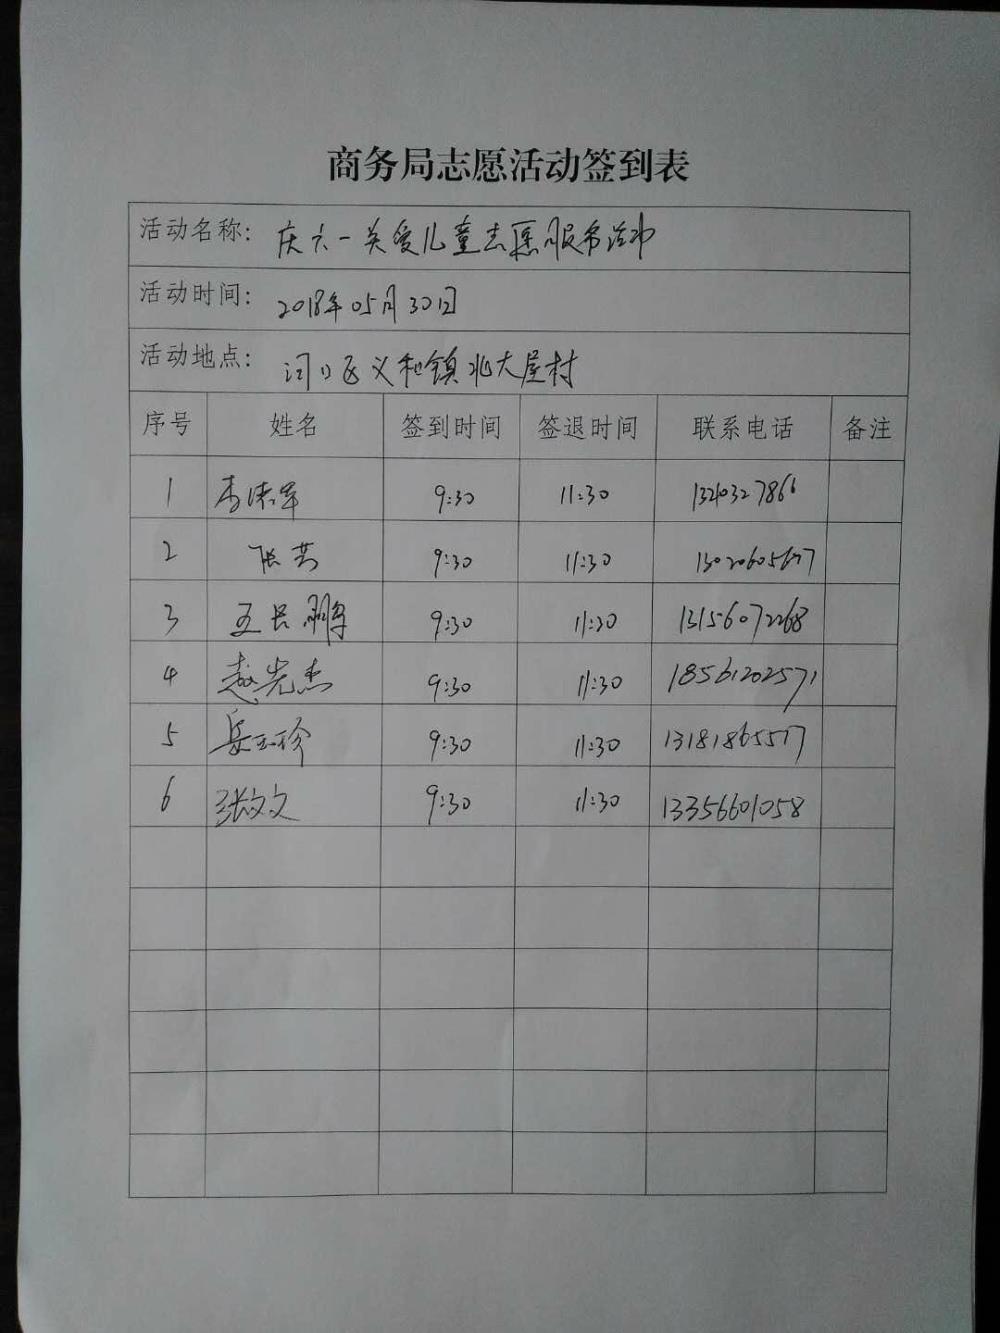 商务局志愿活动签到表
活动名称: 庆六一关爱儿童志愿服务活动
活动时间: 2018年05月30日
活动地点: 河口区义和镇北大屋村
序号 姓名 签到时间 签退时间 联系电话 备注
1 9:30 11:30
2 9:30 11:30
3 王长鹏 9:30 11:30 13156072268
4 赵光杰 9:30 11:30 18561202571
5 岳玉珍 9:30 11:30 13181865517
6 张文文 9:30 11:30 13356601058